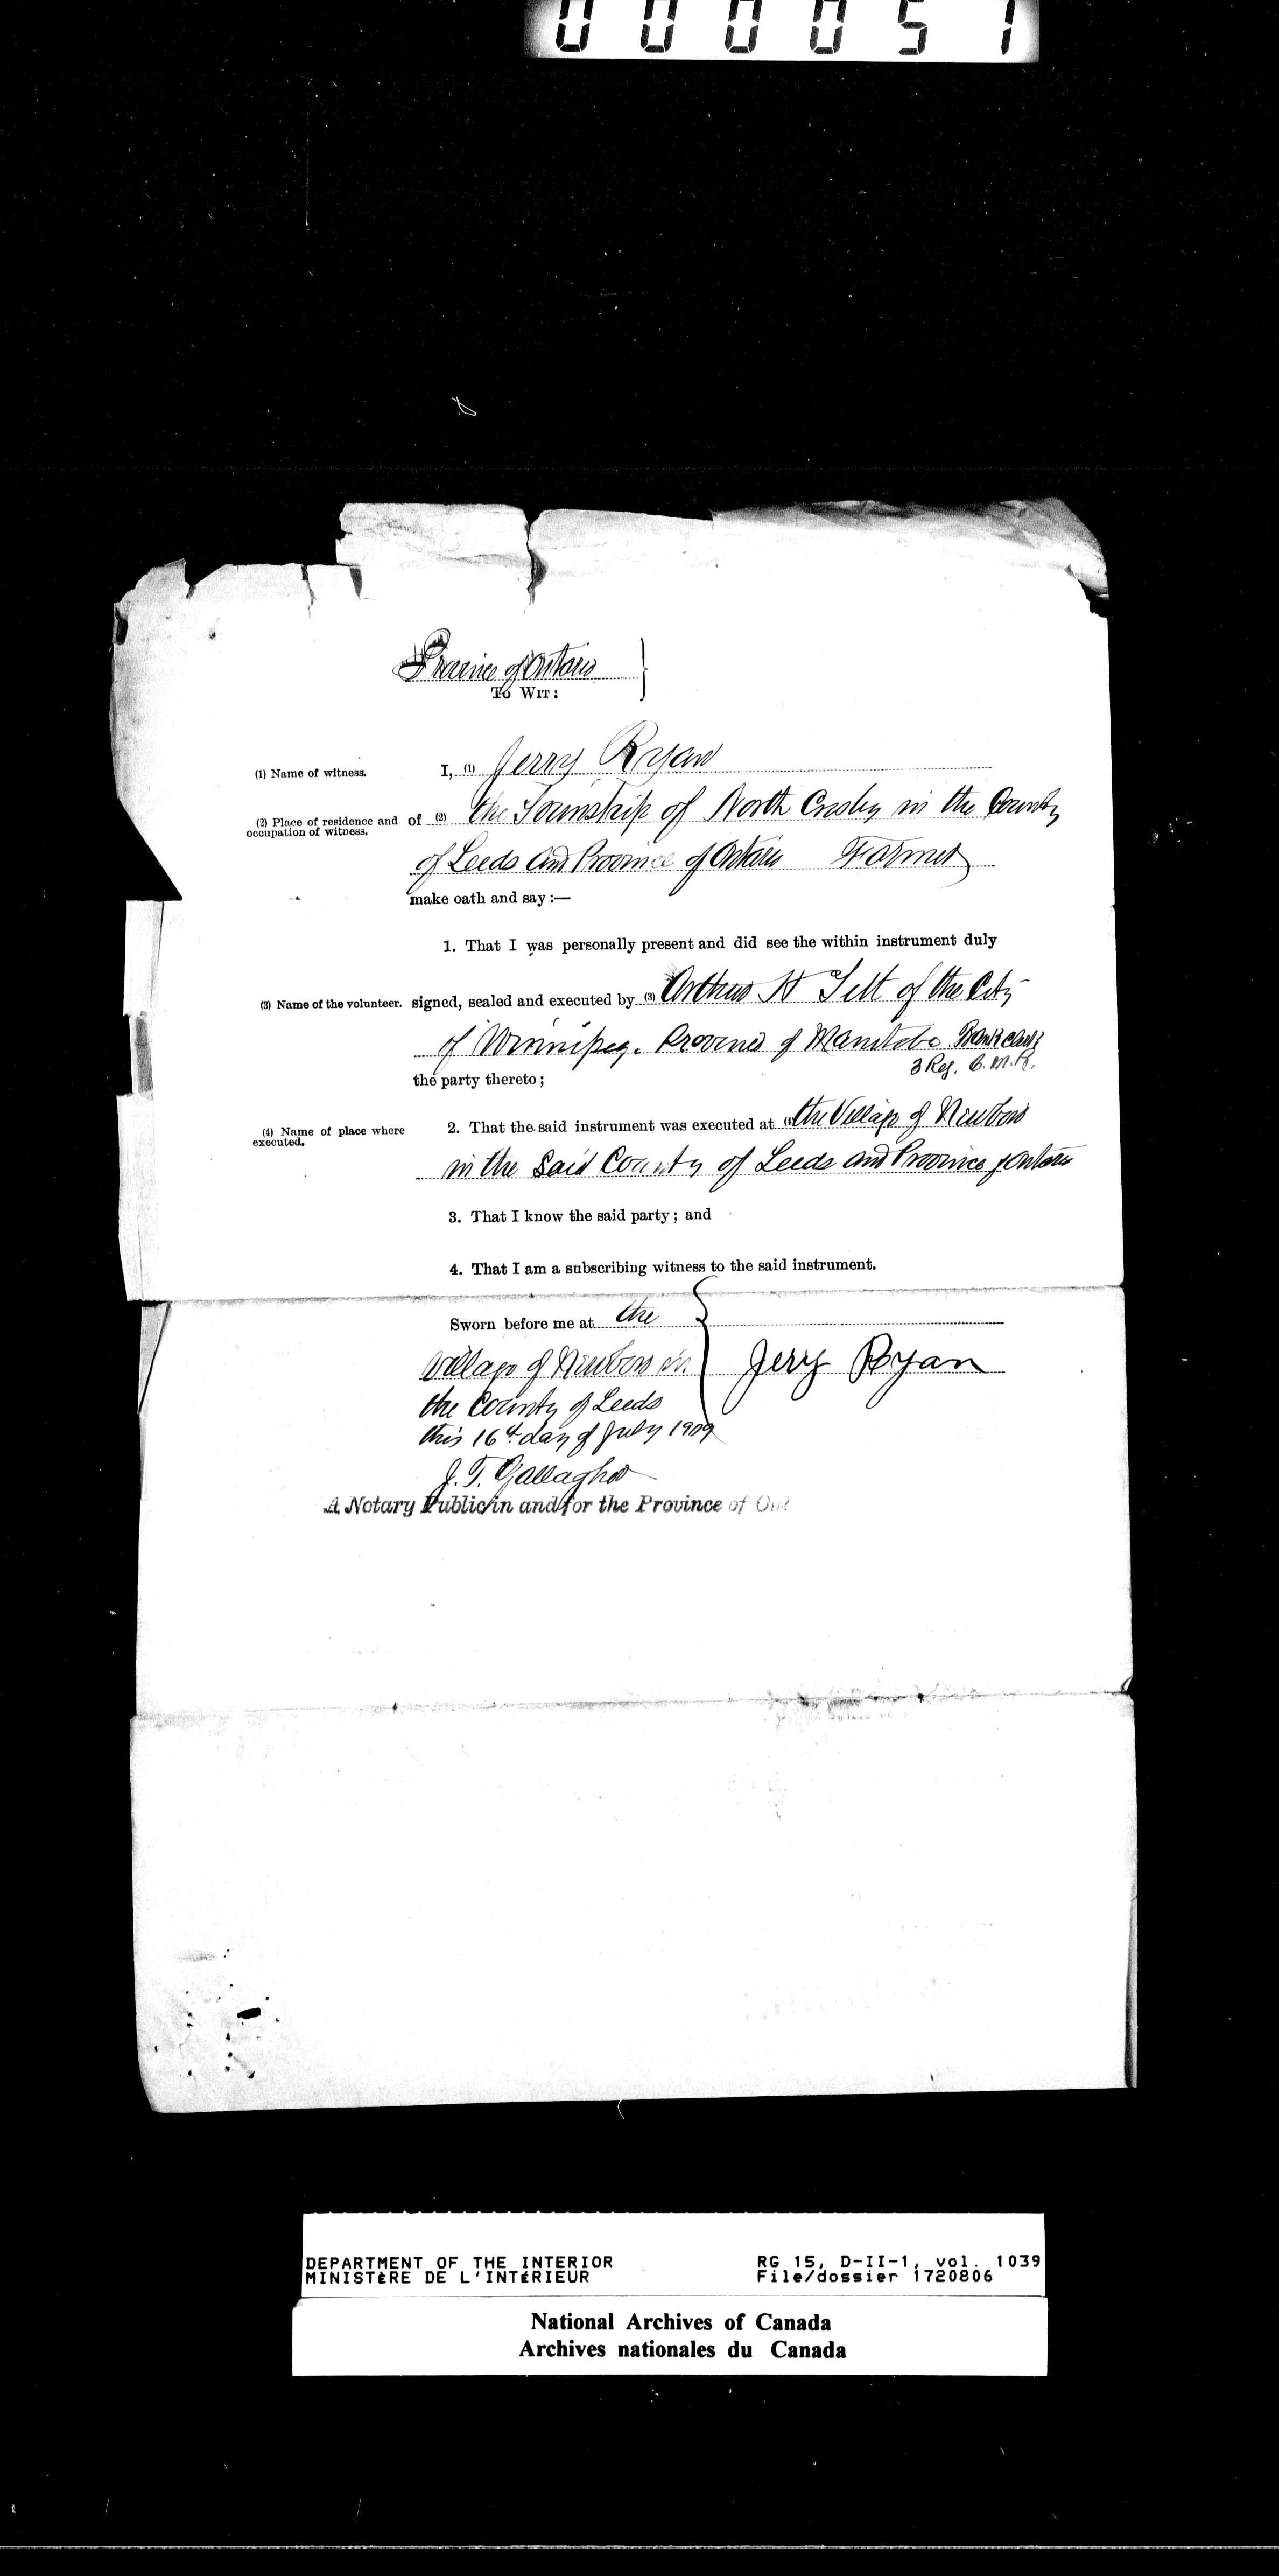 000051
Province of Ontario
To Wit:
(1) Name of witness. I, (1) Jerry Ryan
(2) Place of residence and occupation of witness. of (2) the Township of North Crosby in the County
of Leeds and Province of Ontario Farmer
make oath and say:—
1. That I was personally present and did see the within instrument duly
(3) Name of the volunteer. signed, sealed and executed by (3) Arthur H Tett of the City
of Winnipeg. Province of Manitoba Bank clerk
3 Reg. C.M.R.
the party thereto;
(4) Name of place where executed. 2. That the said instrument was executed at the Village of Newboro
in the said County of Leeds and Province of Ontario
3. That I know the said party; and
4. That I am a subscribing witness to the said instrument.
Sworn before me at the
Village of Newboro in Jerry Ryan
the County of Leeds
this 16th day of July 1909
J. T. Gallagher
A Notary Public in and for the Province of Ont
DEPARTMENT OF THE INTERIOR RG 15, D-II-1, vol. 1039
MINISTÈRE DE L'INTÉRIEUR File/dossier 1720806
National Archives of Canada
Archives nationales du Canada